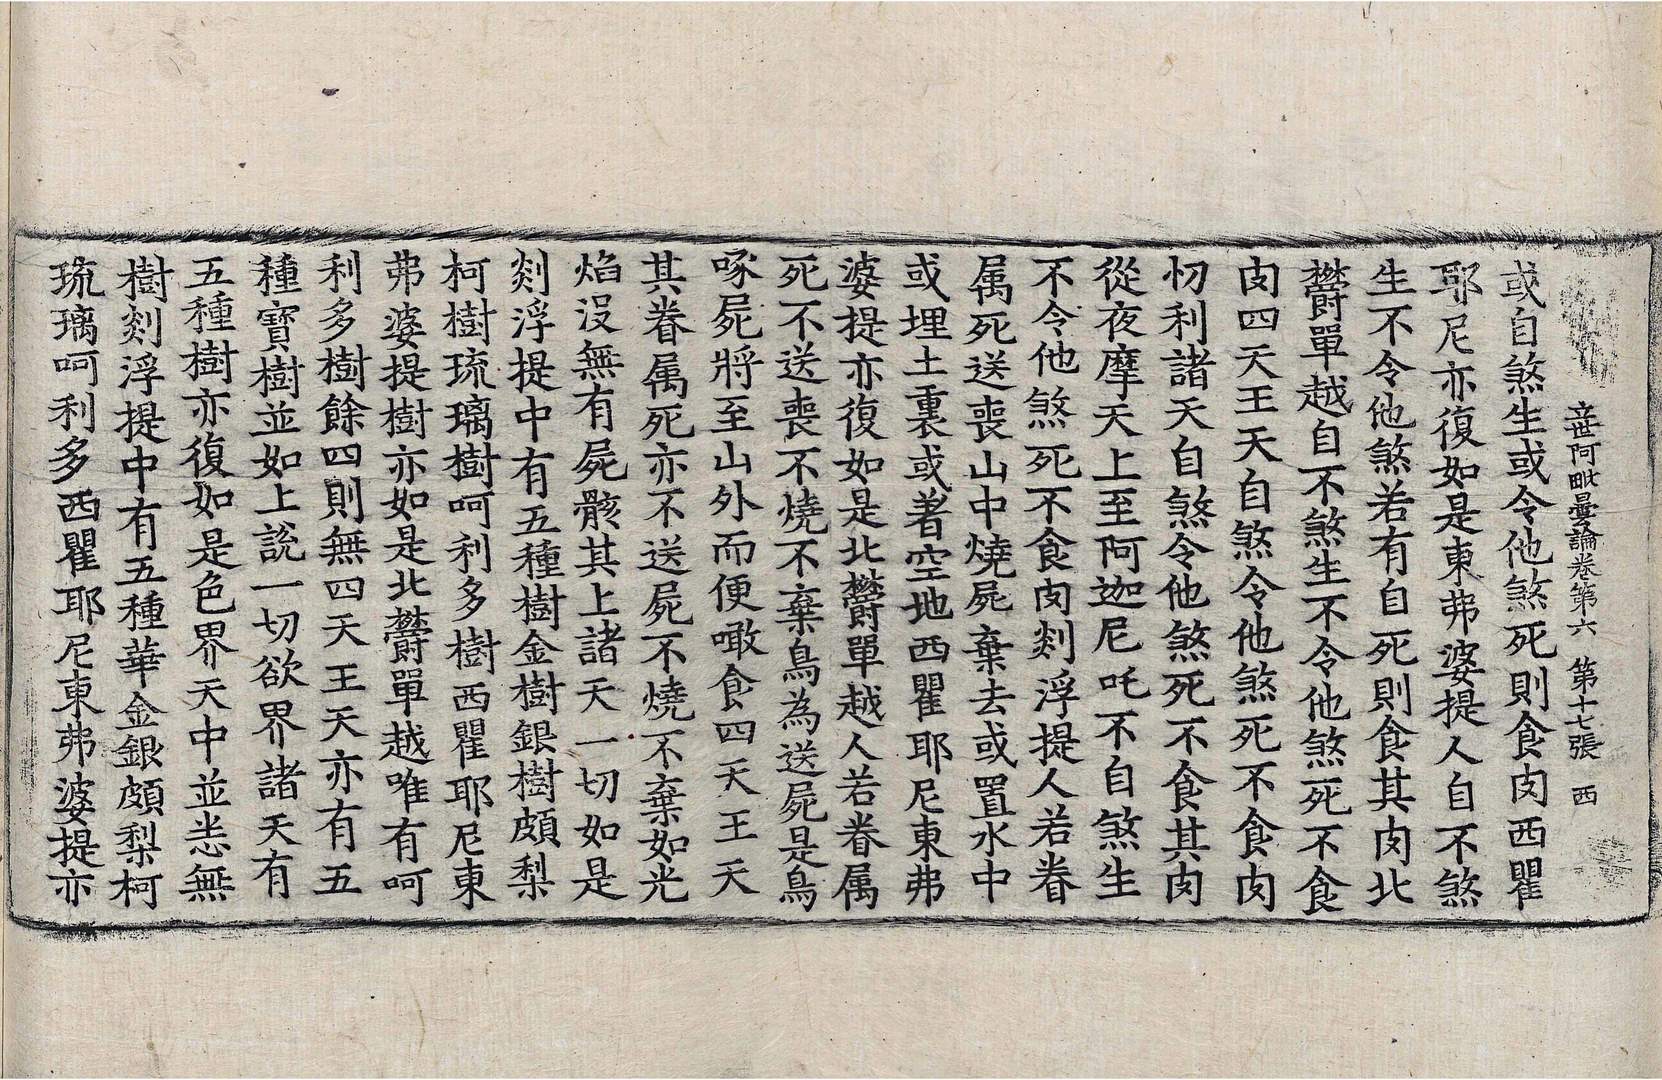 立世阿毗曇論卷第六　第十七張　西
或自煞生或令他煞死則食肉西瞿
耶尼亦復如是東弗婆提人自不煞
生不令他煞若有自死則食其肉北
欝單越自不煞生不令他煞死不食
肉四天王天自煞令他煞死不食肉
忉利諸天自煞令他煞死不食其肉
從夜摩天上至阿迦尼吒不自煞生
不令他煞死不食肉剡浮提人若眷
属死送喪山中燒屍棄去或置水中
或埋土裏或著空地西瞿耶尼東弗
婆提亦復如是北欝單越人若眷属
死不送喪不燒不棄鳥為送屍是鳥
啄屍將至山外而便噉食四天王天
其眷属死亦不送屍不燒不棄如光
焰沒無有屍骸其上諸天一切如是
剡浮提中有五種樹金樹銀樹頗梨
柯樹琉璃樹呵利多樹西瞿耶尼東
弗婆提樹亦如是北欝單越唯有呵
利多樹餘四則無四天王天亦有五
種寶樹並如上說一切欲界諸天有
五種樹亦復如是色界天中並恙無
樹剡浮提中有五種華金銀頗梨柯
琉璃呵利多西瞿耶尼東弗婆提亦